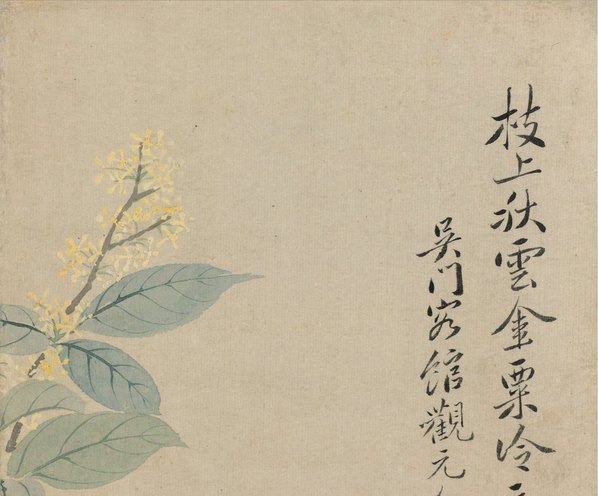 枝上秋雲金粟冷
吳門客館觀元